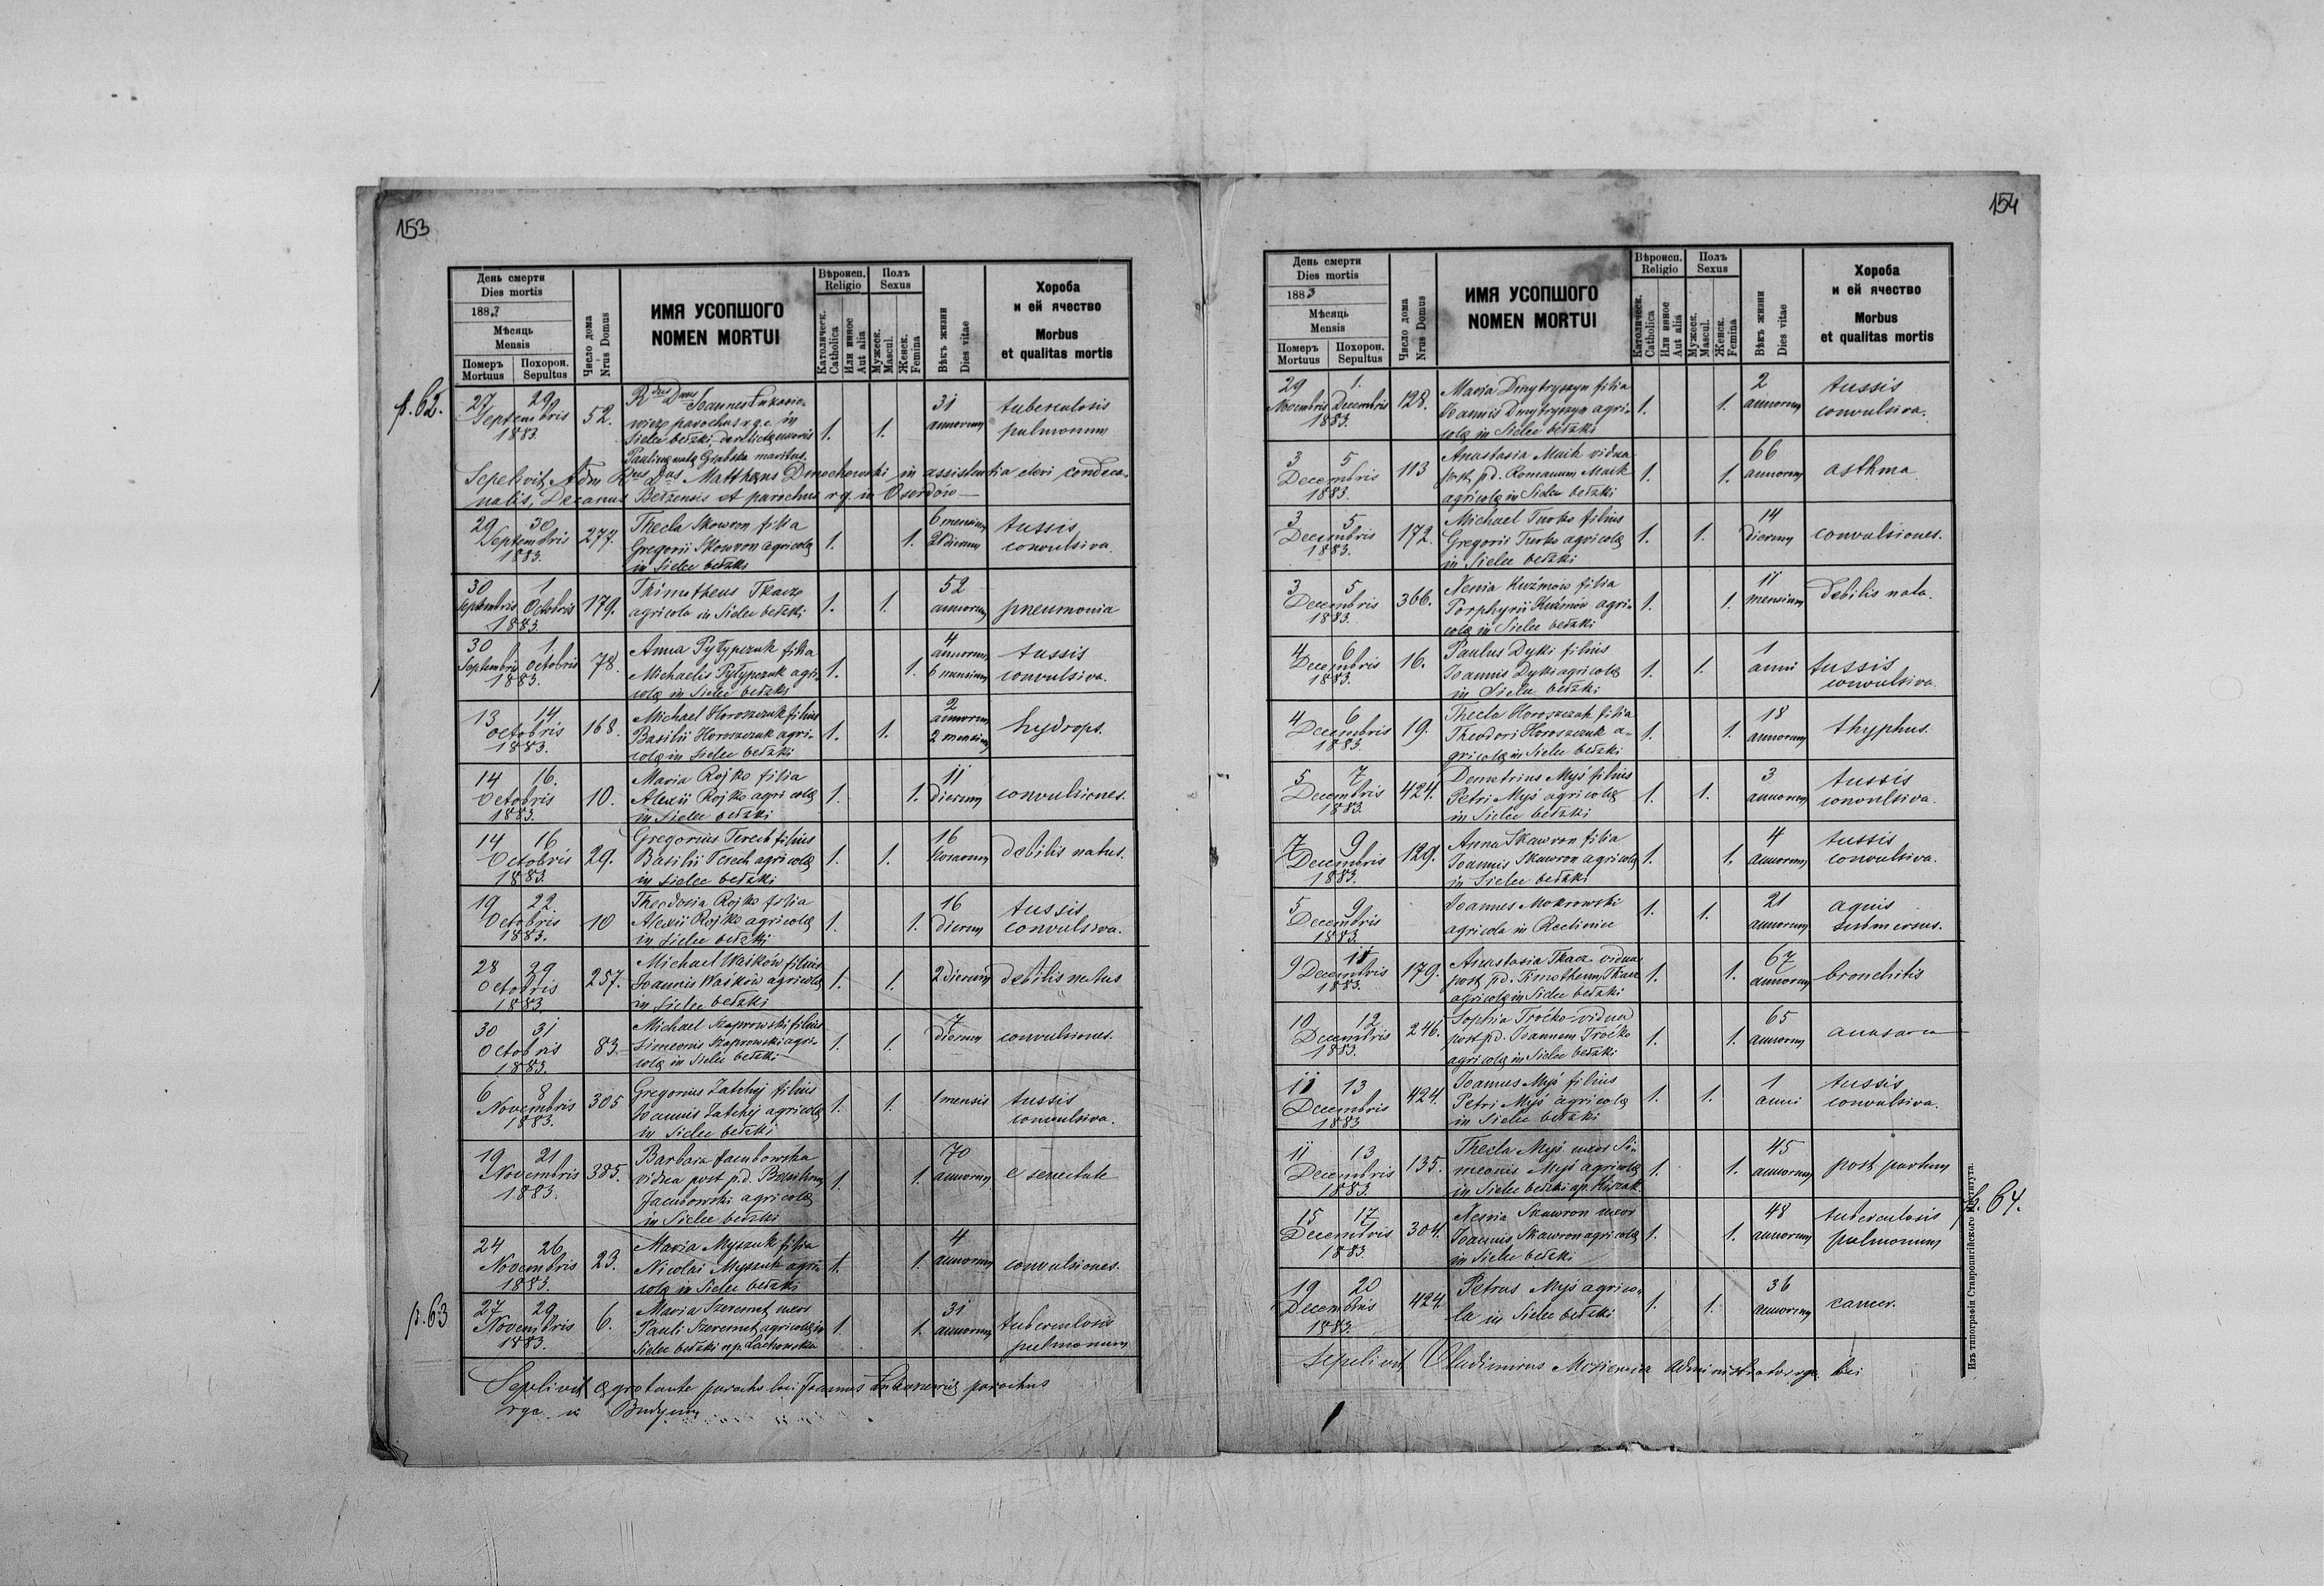 153
День смерти
Dies mortis
1883
Мѣсяць
Mensis
Померъ Mortuus
Похорон. Sepultus
Число дома
Nrus Domus
ИМЯ УСОПШОГО
NOMEN MORTUI
Вѣроисп.
Religio
Католическ.
Catholica
Или инное
Aut alia
Полъ
Sexus
Мужеск.
Mascul.
Женск.
Femina
Вѣкъ жизни
Dies vitae
Хороба
и ей ячество
Morbus
et qualitas mortis
p. 62.
27 29 Septembris 1883. 52.
Rdus Dnus Joannes
wicz parochus r.g.c. in
Sielec bełzki, derelictę uxoris
Paulinę natę Grabska maritus.
1. 1. 31 annorum tuberculosis pulmonum
Sepelivit Adm Rdus Dnus Matthæus Dmochowski in assistentia cleri condeca-
nalis, Decanus Bełzensis et parochus r.g. in Oserdów
29 30 Septembris 1883. 277.
Thecla Skowron filia
Gregorii Skowron agricolę
in Sielec bełzki
1. 1. 6 mensium 21 dierum tussis convulsiva.
30 Septembris 1 Octobris 1883. 179.
Thimotheus Tkacz
agricola in Sielec bełzki
1. 1. 52 annorum pneumonia
30 Septembris 1 Octobris 1883. 78.
Anna Pyłypczuk filia
Michaelis Pyłypczuk agri-
colę in Sielec bełzki
1. 1. 4 annorum 6 mensium tussis convulsiva.
13 14 Octobris 1883. 168.
Michael Horoszczuk filius
Basilii Horoszczuk agri-
colę in Sielec bełzki
1. 1. 2 annorum 2 mensium hydrops.
14 16. Octobris 1883. 10.
Maria Rojko filia
Alexii Rojko agricolę
in Sielec bełzki
1. 1. 11 dierum convulsiones.
14 16 Octobris 1883. 29.
Gregorius Terech filius
Basilii Terech agricolę
in Sielec bełzki
1. 1. 16 horarum debilis natus.
19 22. Octobris 1883. 10
Theodosia Rojko filia
Alexii Rojko agricolę
in Sielec bełzki
1. 1. 16 dierum tussis convulsiva.
28 29 Octobris 1883. 257.
Michael Waśków filius
Joannis Waśków agricolę
in Sielec bełzki
1. 1. 2 dierum debilis natus
30 31 Octobris 1883. 83.
Michael Szaprowski filius
Simeonis Szaprowski agri-
colę in Sielec bełzki
1. 1. 7 dierum convulsiones.
6 8 Novembris 1883. 305
Gregorius Zatchij filius
Joannis Zatchij agricolę
in Sielec bełzki
1. 1. 1 mensis tussis convulsiva.
19 21 Novembris 1883. 385.
Barbara Jacubowska
vidua post p.d. Basilium
Jacubowski agricolę
in Sielec bełzki
1. 1. 70 annorum e senectute
24 26 Novembris 1883. 23.
Maria Myszuk filia
Nicolai Myszuk agri-
colę in Sielec bełzki
1. 1. 4 annorum convulsiones.
p. 63
27 29 Novembris 1883. 6.
Maria Szeremet uxor
Pauli Szeremet agricolę in
Sielec bełzki n.p. Lachowska
1. 1. 31 annorum tuberculosis pulmonum
Sepelivit ęgrotante parocho loci Joannes parochus
rgc. in Budynin
154
День смерти
Dies mortis
1883
Мѣсяць
Mensis
Померъ Mortuus
Похорон. Sepultus
Число дома
Nrus Domus
ИМЯ УСОПШОГО
NOMEN MORTUI
Вѣроисп.
Religio
Католическ.
Catholica
Или инное
Aut alia
Полъ
Sexus
Мужеск.
Mascul.
Женск.
Femina
Вѣкъ жизни
Dies vitae
Хороба
и ей ячество
Morbus
et qualitas mortis
29 Novembris 1. Decembris 1883. 128.
Maria Dmytryszyn filia
Joannis Dmytryszyn agri-
colę in Sielec bełzki
1. 1. 2 annorum tussis convulsiva.
3 5 Decembris 1883. 113
Anastasia Maik vidua
post p.d. Romanum Maik
agricolę in Sielec bełzki
1. 1. 66 annorum asthma
3 5 Decembris 1883. 172.
Michael Turko filius
Gregorii Turko agricolę
in Sielec bełzki
1. 1. 14 dierum convulsiones.
3 5 Decembris 1883. 366.
Nenia Kuźmów filia
Porphyrii Kuźmów agri-
colę in Sielec bełzki
1. 1. 11 mensium debilis nata.
4 6 Decembris 1883. 16.
Paulus Dyki filius
Joannis Dyki agricolę
in Sielec bełzki
1. 1. 1 anni tussis convulsiva.
4 6 Decembris 1883. 19.
Thecla Horoszczuk filia
Theodori Horoszczuk a-
gricolę in Sielec bełzki
1. 1. 18 annorum thyphus.
5 7 Decembris 1883. 424.
Demetrius Myś filius
Petri Myś agricolę
in Sielec bełzki
1. 1. 3 annorum tussis convulsiva.
7 9 Decembris 1883. 129.
Anna Skawron filia
Joannis Skawron agricolę
in Sielec bełzki
1. 1. 4 annorum tussis convulsiva.
5 9 Decembris 1883.
Joannes Mokrowski
agricola in
1. 1. 21 annorum aquis submersus.
9 11 Decembris 1883. 179.
Anastasia Tkacz vidua
post p.d. Timotheum Tkacz
agricolę in Sielec bełzki
1. 1. 67 annorum bronchitis
10 12 Decembris 1883. 246.
Sophia Troćko vidua
post p.d. Joannem Troćko
agricolę in Sielec bełzki
1. 1. 65 annorum anasarca
11 13 Decembris 1883 424.
Joannes Myś filius
Petri Myś agricolę
in Sielec bełzki
1. 1. 1 anni tussis convulsiva.
11 13 Decembris 1883. 135.
Thecla Myś uxor Si-
meonis Myś agricolę
in Sielec bełzki n.p.
1. 1. 45 annorum post partum
p. 64.
15 17 Decembris 1883. 304.
Nenia Skawron uxor
Joannis Skawron agricolę
in Sielec bełzki
1. 1. 48 annorum tuberculosis pulmonum
19 20 Decembris 1883. 424.
Petrus Myś agrico-
la in Sielec bełzki
1. 1. 36 annorum cancer.
Sepelivit Vladimirus administrator rgc. loci
Изъ типографіи Ставропигійского Института.